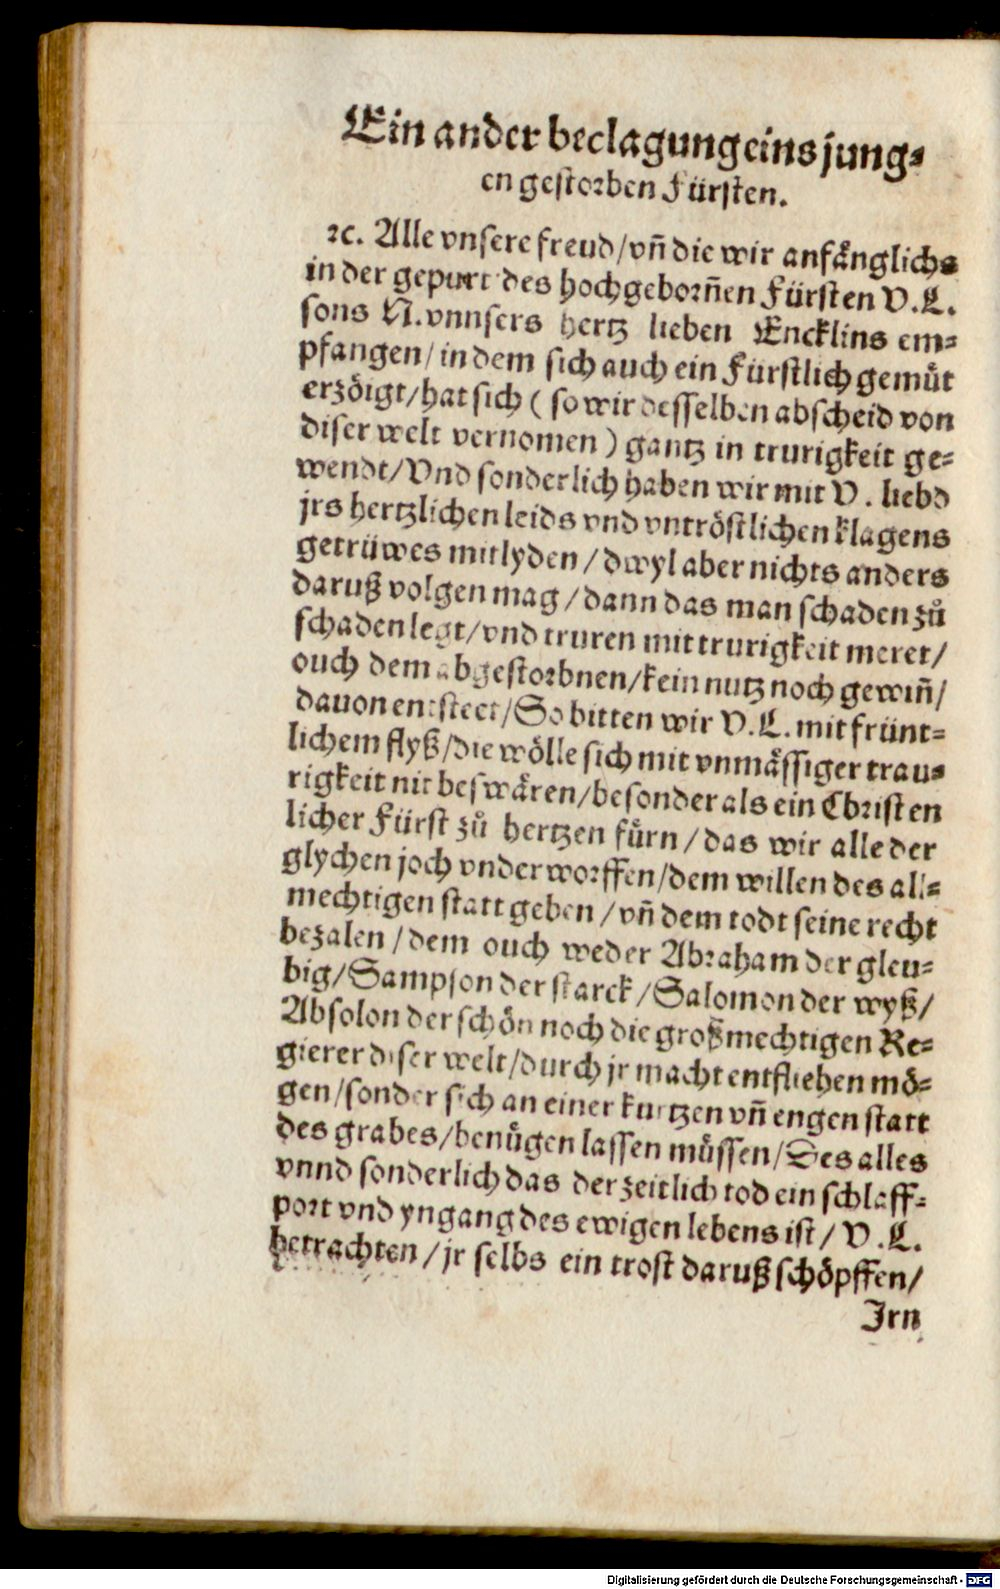 Ein ander beclagung eins jung⸗
en gestorben Fürsten.
ꝛc. Alle vnsere freud/vñ die wir anfaͤnglichs
in der gepurt des hochgeborñen Fürsten V.L.
sons N.vnnsers hertz lieben Encklins em⸗
pfangen/in dem sich auch ein Fürstlich gemuͤt
erzoͤigt/hat sich ( so wir desselben abscheid von
diser welt vernomen ) gantz in trurigkeit ge⸗
wendt/Vnd sonderlich haben wir mit V. liebd
jrs hertzlichen leids vnd vntroͤstlichen klagens
getrüwes mitlyden/dwyl aber nichts anders
daruß volgen mag/dann das man schaden zů
schaden legt/vnd truren mit trurigkeit meret/
ouch dem abgestorbnen/kein nutz noch gewiñ/
dauon entsteet/So bitten wir V.L. mit frünt⸗
lichem flyß/die woͤlle sich mit vnmaͤssiger trau⸗
rigkeit nit beswaͤren/besonder als ein Christen
licher Fürst zů hertzen fuͤrn/das wir alle der
glychen joch vnderworffen/dem willen des all⸗
mechtigen statt geben/vñ dem todt seine recht
bezalen/dem ouch weder Abraham der gleu⸗
big/Sampson der starck/Salomon der wyß/
Absolon der schoͤn noch die großmechtigen Re⸗
gierer diser welt/durch jr macht entfliehen moͤ⸗
gen/sonder sich an einer kurtzen vñ engen statt
des grabes/benuͤgen lassen muͤssen/Des alles
vnnd sonderlich das der zeitlich tod ein schlaff⸗
port vnd yngang des ewigen lebens ist/V.L.
betrachten/jr selbs ein trost daruß schoͤpffen/
Jrn
Digitalisierung gefördert durch die Deutsche Forschungsgemeinschaft - DFG